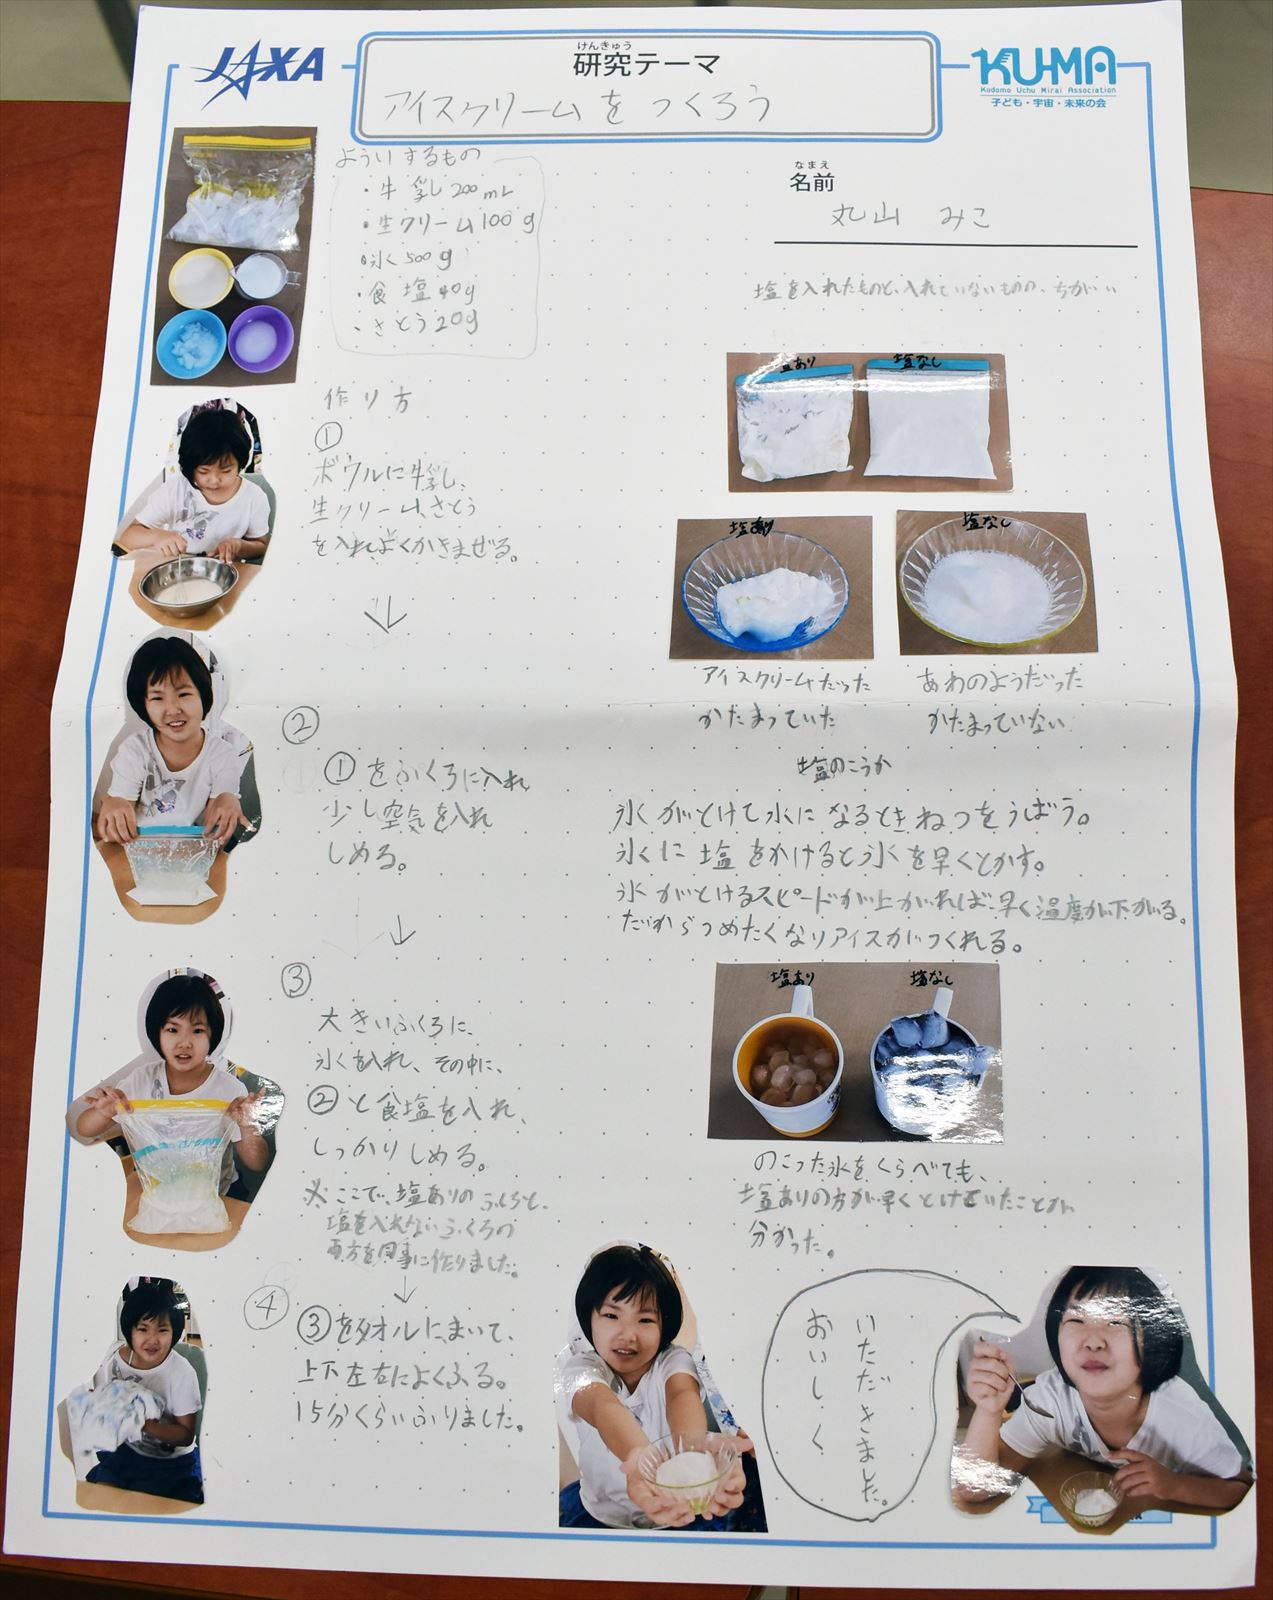 JAXA
けんきゅう
研究テーマ
アイスクリームをつくろう
KU-MA
Kodomo Uchu Mirai Association
子ども・宇宙・未来の会
なまえ
名前
丸山 みこ
よういするもの
・牛乳 200mL
・生クリーム 100g
・氷 500g
・食塩 40g
・さとう 20g
作り方
①
ボウルに牛乳、
生クリーム、さとう
を入れよくかきまぜる。
②
①をふくろに入れ
少し空気を入れ
しめる。
③
大きいふくろに、
氷を入れ、その中に、
②と食塩を入れ、
しっかりしめる。
※ここで、塩ありのふくろと、
塩を入れないふくろの
両方を同事に作りました。
④
③をタオルにまいて、
上下左右によくふる。
15分くらいふりました。
塩を入れたものと、入れていないものの、ちがい
塩あり
塩なし
塩あり
塩なし
アイスクリームだった
かたまっていた
あわのようだった
かたまっていない
塩のこうか
氷がとけて水になるときねつをうばう。
氷に塩をかけると氷を早くとかす。
氷がとけるスピードが上がれば早く温度が下がる。
だからつめたくなりアイスがつくれる。
塩あり
塩なし
のこった氷をくらべても、
塩ありの方が早くとけていたことが
分かった。
おいしく
いただきました。